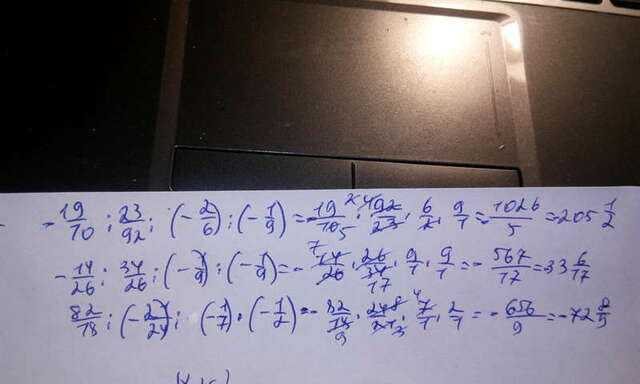 - 19/70 : 23/92 : (- 2/6) : (- 1/9) = - 19/70 5 · 92/23 · 6/2 · 9/1 = - 1026/5 = 205 1/2
- 14/26 : 34/26 : (- 1/9) : (- 1/9) = - 7 14/26 · 26/34 17 · 9/1 · 9/1 = - 567/17 = 33 6/17
82/18 : : (- 1/7) · (- 1/2) = - 82/18 9 · 7/1 · 2/1 = - 656/9 = - 72 8/9